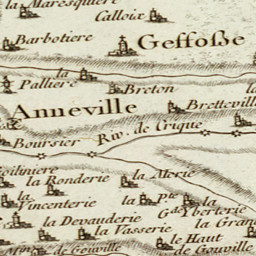 la Maresquiere
Calloix
Barbotiere
Geffoße
la Palliere
Breton
Anneville
Bretteville
Riv. de Crique
Boursier
la Ronderie
la Merie
la Vincenterie
la Pte
la
G de Yberterie
la Devauderie
la Gran
la Vasserie
le Haut
de Gouville
de Gouville